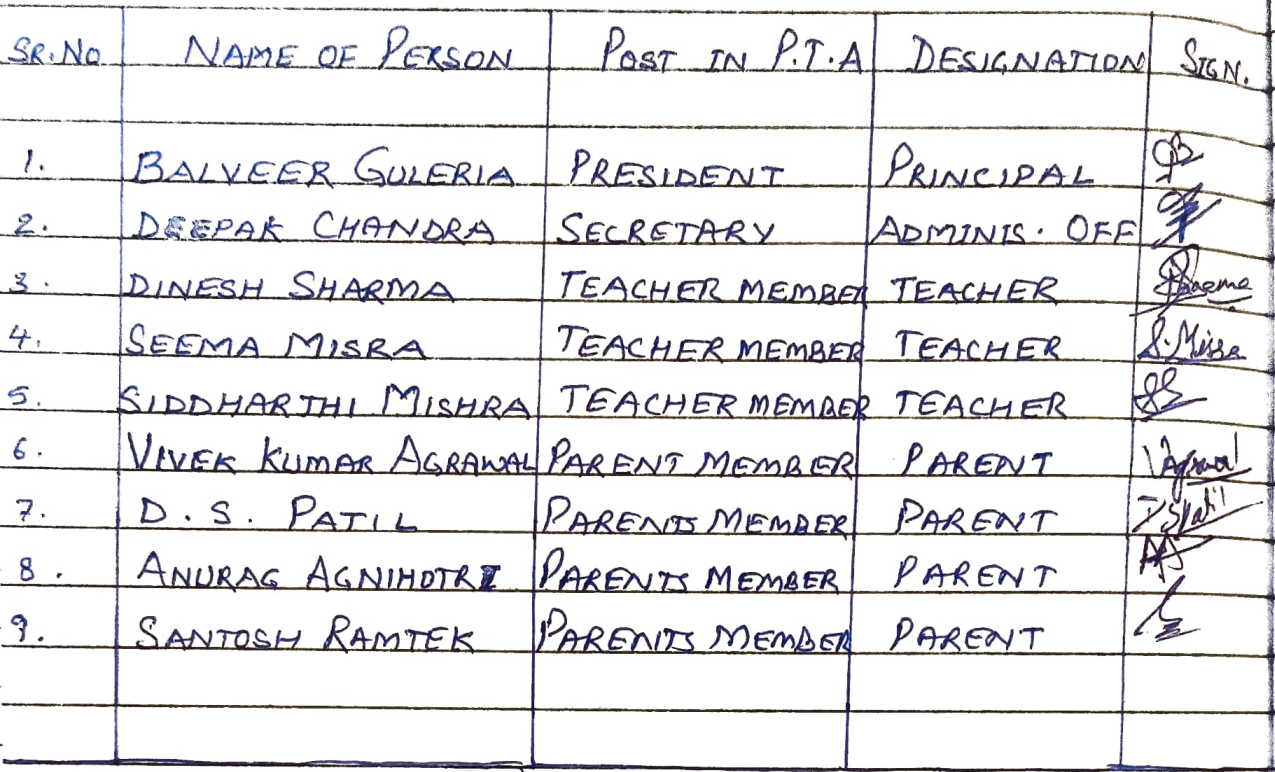 SR. NO NAME OF PERSON POST IN P.T.A DESIGNATION SIGN.
1. BALVEER GULERIA PRESIDENT PRINCIPAL
2. DEEPAK CHANDRA SECRETARY ADMINIS. OFF
3. DINESH SHARMA TEACHER MEMBER TEACHER Sharma
4. SEEMA MISRA TEACHER MEMBER TEACHER S. Misra
5. SIDDHARTHI MISHRA TEACHER MEMBER TEACHER
6. VIVEK KUMAR AGRAWAL PARENT MEMBER PARENT VAgrawal
7. D. S. PATIL PARENTS MEMBER PARENT DSPatil
8. ANURAG AGNIHOTRI PARENTS MEMBER PARENT
9. SANTOSH RAMTEK PARENTS MEMBER PARENT